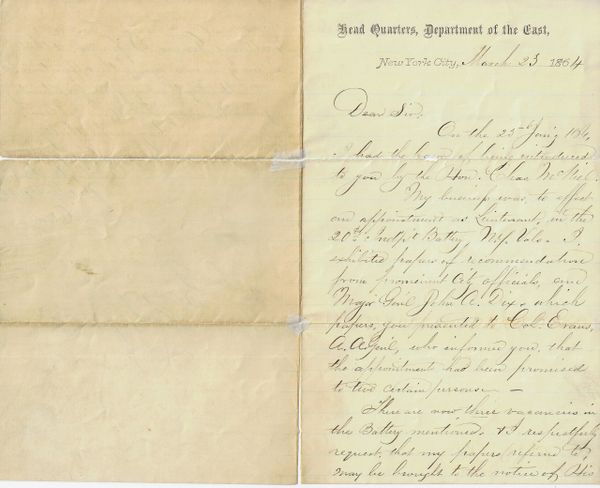 Head Quarters, Department of the East,
New York City, March 23 1864
Dear Sir.
On the 25th
I had the honor of being introduced
to you by the Hon. Chas
My business was, to effect
an appointment as Lieutenant, in the
20th Indpt Battery, N.Y. Vols. I
exhibited papers of recommendation
from prominent City officials, and
Major Genl John A. Dix, which
papers, you presented to Col. Evans,
A. A. Genl, who informed you, that
the appointments had been promised
to two certain persons. —
There are now three vacancies in
the Battery mentioned & I respectfully
request, that my papers, referred to,
may be brought to the notice of His